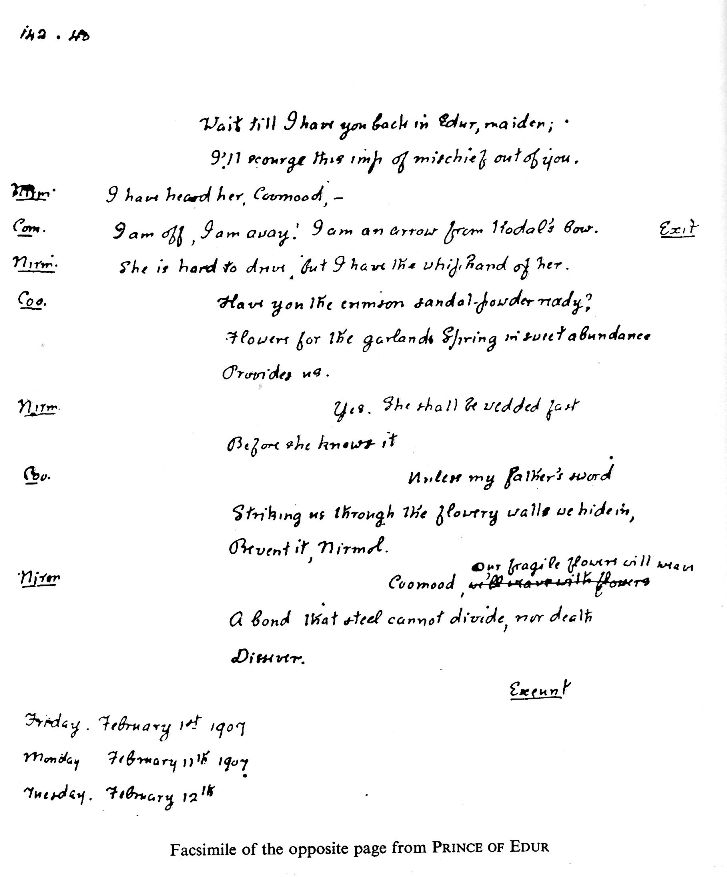 142 . 43
Wait till I have you back in Edur, maiden;
I'll scourge this imp of mischief out of you.
Nirm. I have heard her, Coomood, –
Com. I am off, I am away! I am an arrow from Kodal's bow. Exit
Nirm. She is hard to drive, but I have the whiphand of her.
Coo. Have you the crimson sandal-powder ready?
Flowers for the garlands Spring in sweet abundance
Provides us.
Nirm. Yes. She shall be wedded fast
Before she knows it
Coo. Unless my father's sword
Striking us through the flowery walls we hide in,
Prevent it, Nirmol.
our fragile flowers will weave
Nirm Coomood, we'll weave with flowers
A bond that steel cannot divide, nor death
Dissever.
Exeunt
Friday. February 1st 1907
Monday February 11th 1907
Tuesday. February 12th
Facsimile of the opposite page from PRINCE OF EDUR